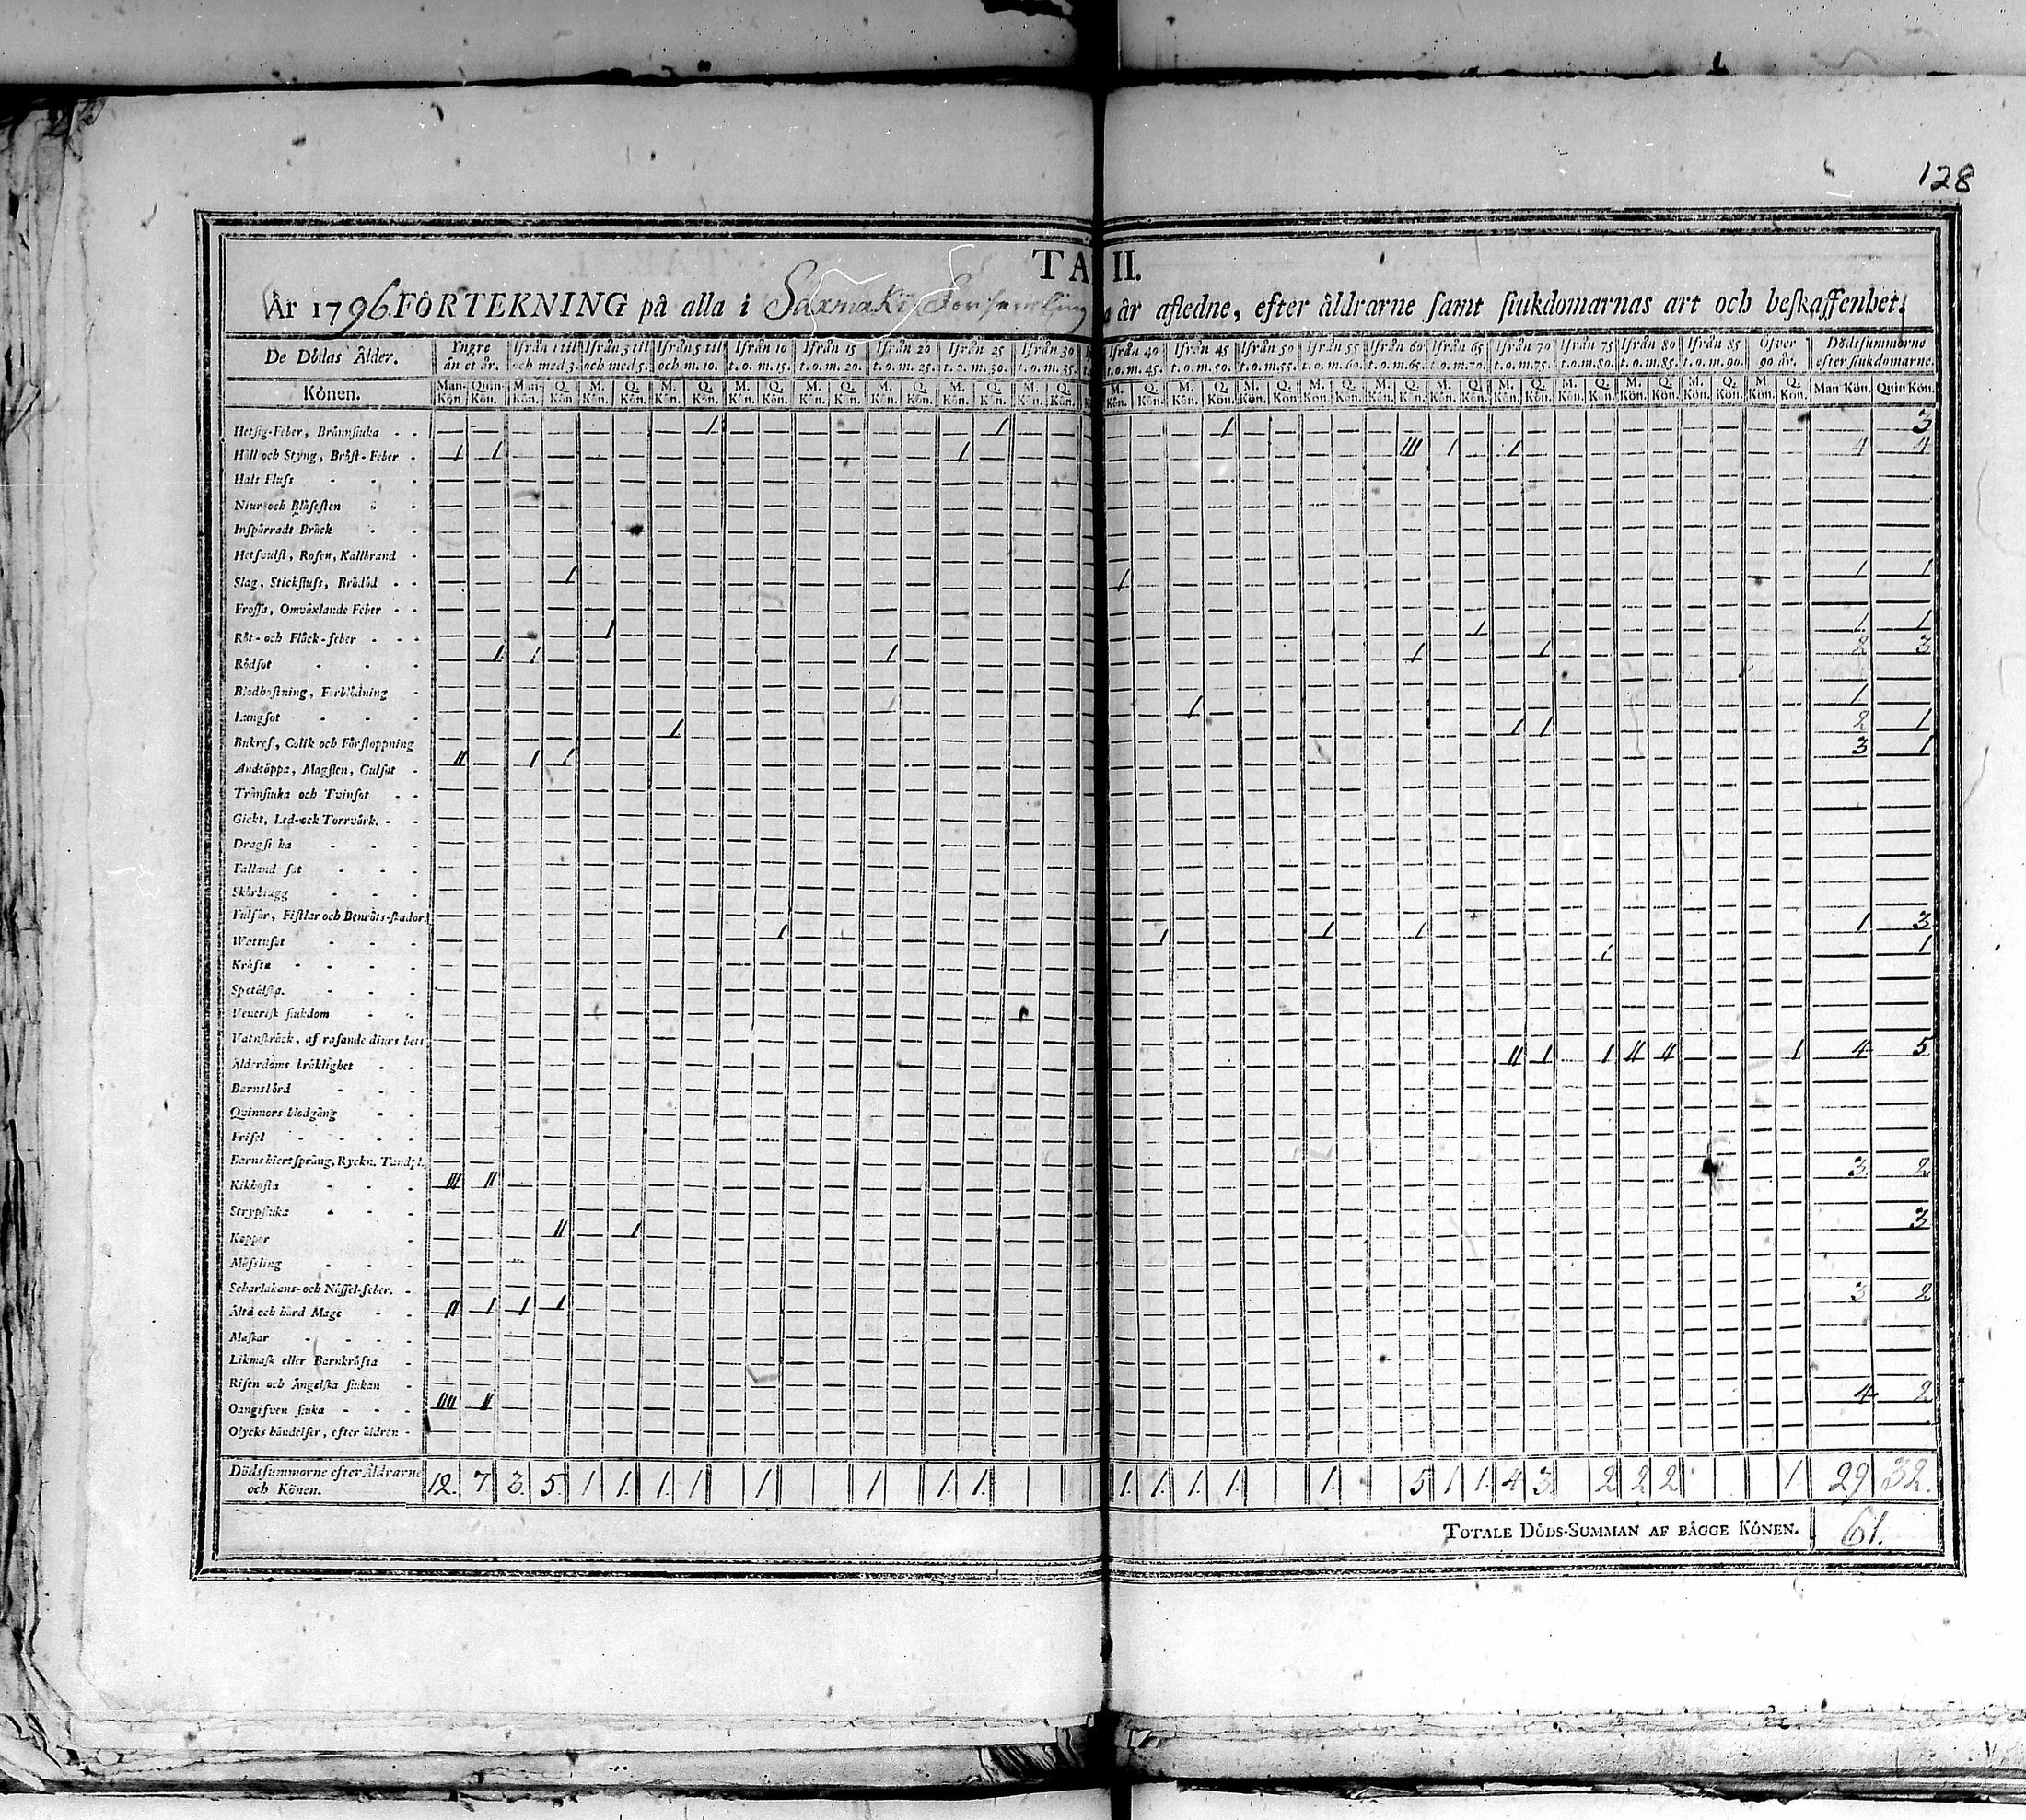 128
TA II.
År 1796. FÖRTEKNING på alla i Saxmäki Församling år afledne, efter åldrarne samt siukdomarnas art och beskaffenhet.
De Dödas Ålder. Yngre än et år. Ifrån 1 til och med 3. Ifrån 3 til och med 5. Ifrån 5 til och m. 10. Ifrån 10 t. o. m. 15. Ifrån 15 t. o. m. 20. Ifrån 20 t. o. m. 25. Ifrån 25 t. o. m. 30. Ifrån 30 t. o. m. 35. Ifrån 40 t. o. m. 45. Ifrån 45 t. o. m. 50. Ifrån 50 t. o. m. 55. Ifrån 55 t. o. m. 60. Ifrån 60 t. o. m. 65. Ifrån 65 t. o. m. 70. Ifrån 70 t. o. m. 75. Ifrån 75 t. o. m. 80. Ifrån 80 t. o. m. 85. Ifrån 85 t. o. m. 90. Öfver 90 år. Dödssummorne efter siukdomarne.
Könen. Man-Kön Quin-Kön. Man-Kön. Q. Kön M. Kön. Q. Kön. M. Kön. Q. Kön. M. Kön. Q. Kön. M. Kön. Q. Kön. M. Kön. Q. Kön. M. Kön. Q. Kön. M. Kön. Q. Kön. M. Kön. Q. Kön. M. Kön. Q. Kön. M. Kön. Q. Kön. M. Kön. Q. Kön. M. Kön. Q. Kön. M. Kön. Q. Kön. M. Kön. Q. Kön. M. Kön. Q. Kön. M. Kön. Q. Kön. M. Kön. Q. Kön. M. Kön. Q. Kön. Man Kön. Quin Kön.
Hetsig-Feber, Brännsiuka - - 1 1 1 — 3
Håll och Styng, Bröst-Feber - 1 1 1 III 1 1 4 4
Hals Fluss - - -
Niur-och Blåsesten - -
Inspärradt Bråck - -
Hetsvulst, Rosen, Kallbrand -
Slag, Stickfluss, Brådöd - - 1 1 1 1
Frossa, Omväxlande Feber - -
Röt- och Fläck-feber - - - 1 1 1 1
Rödsot - - - 1 1 1 1 1 2 3
Blodhostning, Förblödning -
Lungsot - - - 1 1
Bukref, Colik och Förstoppning 1 1 1 2 1
Andtäppa, Magsten, Gulsot - II 1 1 3 1
Trånsiuka och Tvinsot - -
Gickt, Led-ock Torrvärk. - -
Dragsiuka - - -
Falland sot - - -
Skörbiugg - - -
Fulsår, Fistlar och Benröts-skador.
Wattusot - - - 1 1 1 1 1 3
Kräfta - - - - 1 1
Spetälska. - - -
Venerisk siukdom - -
Vatuskräck, af rasande diurs bett
Ålderdoms bräklighet - - II 1 1 II II 1 4 5
Barnsbörd - - -
Qvinnors blodgång - -
Frisel - - - -
Barns hiertsprång, Ryckn. Tandsl.
Kikhosta - - - III II 3 2
Strypsiuka - - -
Koppor - II 1 3
Mässling - - -
Scharlakans- och Nässel-feber. -
Ältä och hård Mage - - II 1 1 1 3 2
Maskar - - - -
Likmask eller Barnkräfta -
Risen och Ängelska siukan -
Oangifven siuka - - - IIII II 4 2
Olycks händelser, efter åldren -
Dödssummorne efter Åldrarne och Könen. 12. 7 3. 5. 1 1. 1. 1 1 1 1. 1. 1. 1. 1. 1. 1. 5 1 1. 4 3 2 2 2 1. 29 32.
TOTALE DÖDS-SUMMAN AF BÄGGE KÖNEN. 61.